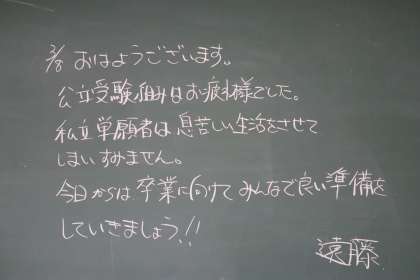 3/8 おはようございます。
公立受験組みはお疲れ様でした。
私立単願者は息苦しい生活をさせて
しまいすみません。
今日からは卒業に向けてみんなで良い準備を
していきましょう!!
遠藤